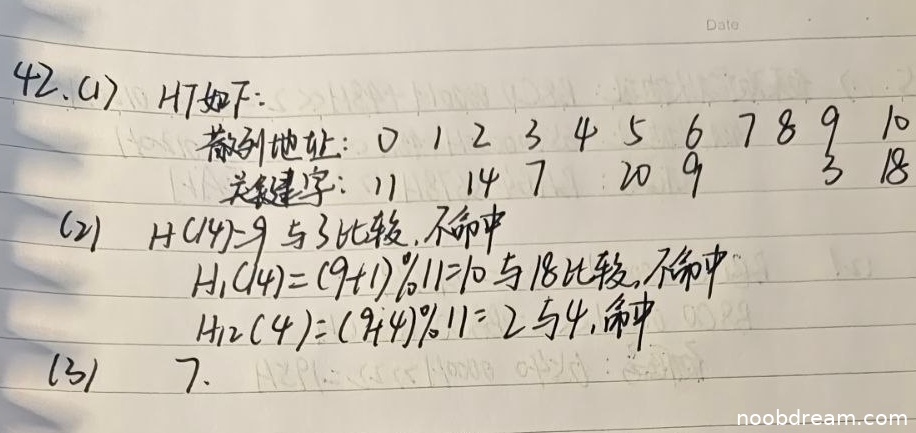 Date
42.(1) HT如下:
散列地址: 0 1 2 3 4 5 6 7 8 9 10
关键字: 11 14 7 20 9 3 18
(2) H(14)=9 与3比较,不命中
H₁(14)=(9+1)%11=10 与18比较,不命中
H₁₂(4)=(9+4)%11=2 与4,命中
(3) 7.
noobdream.com